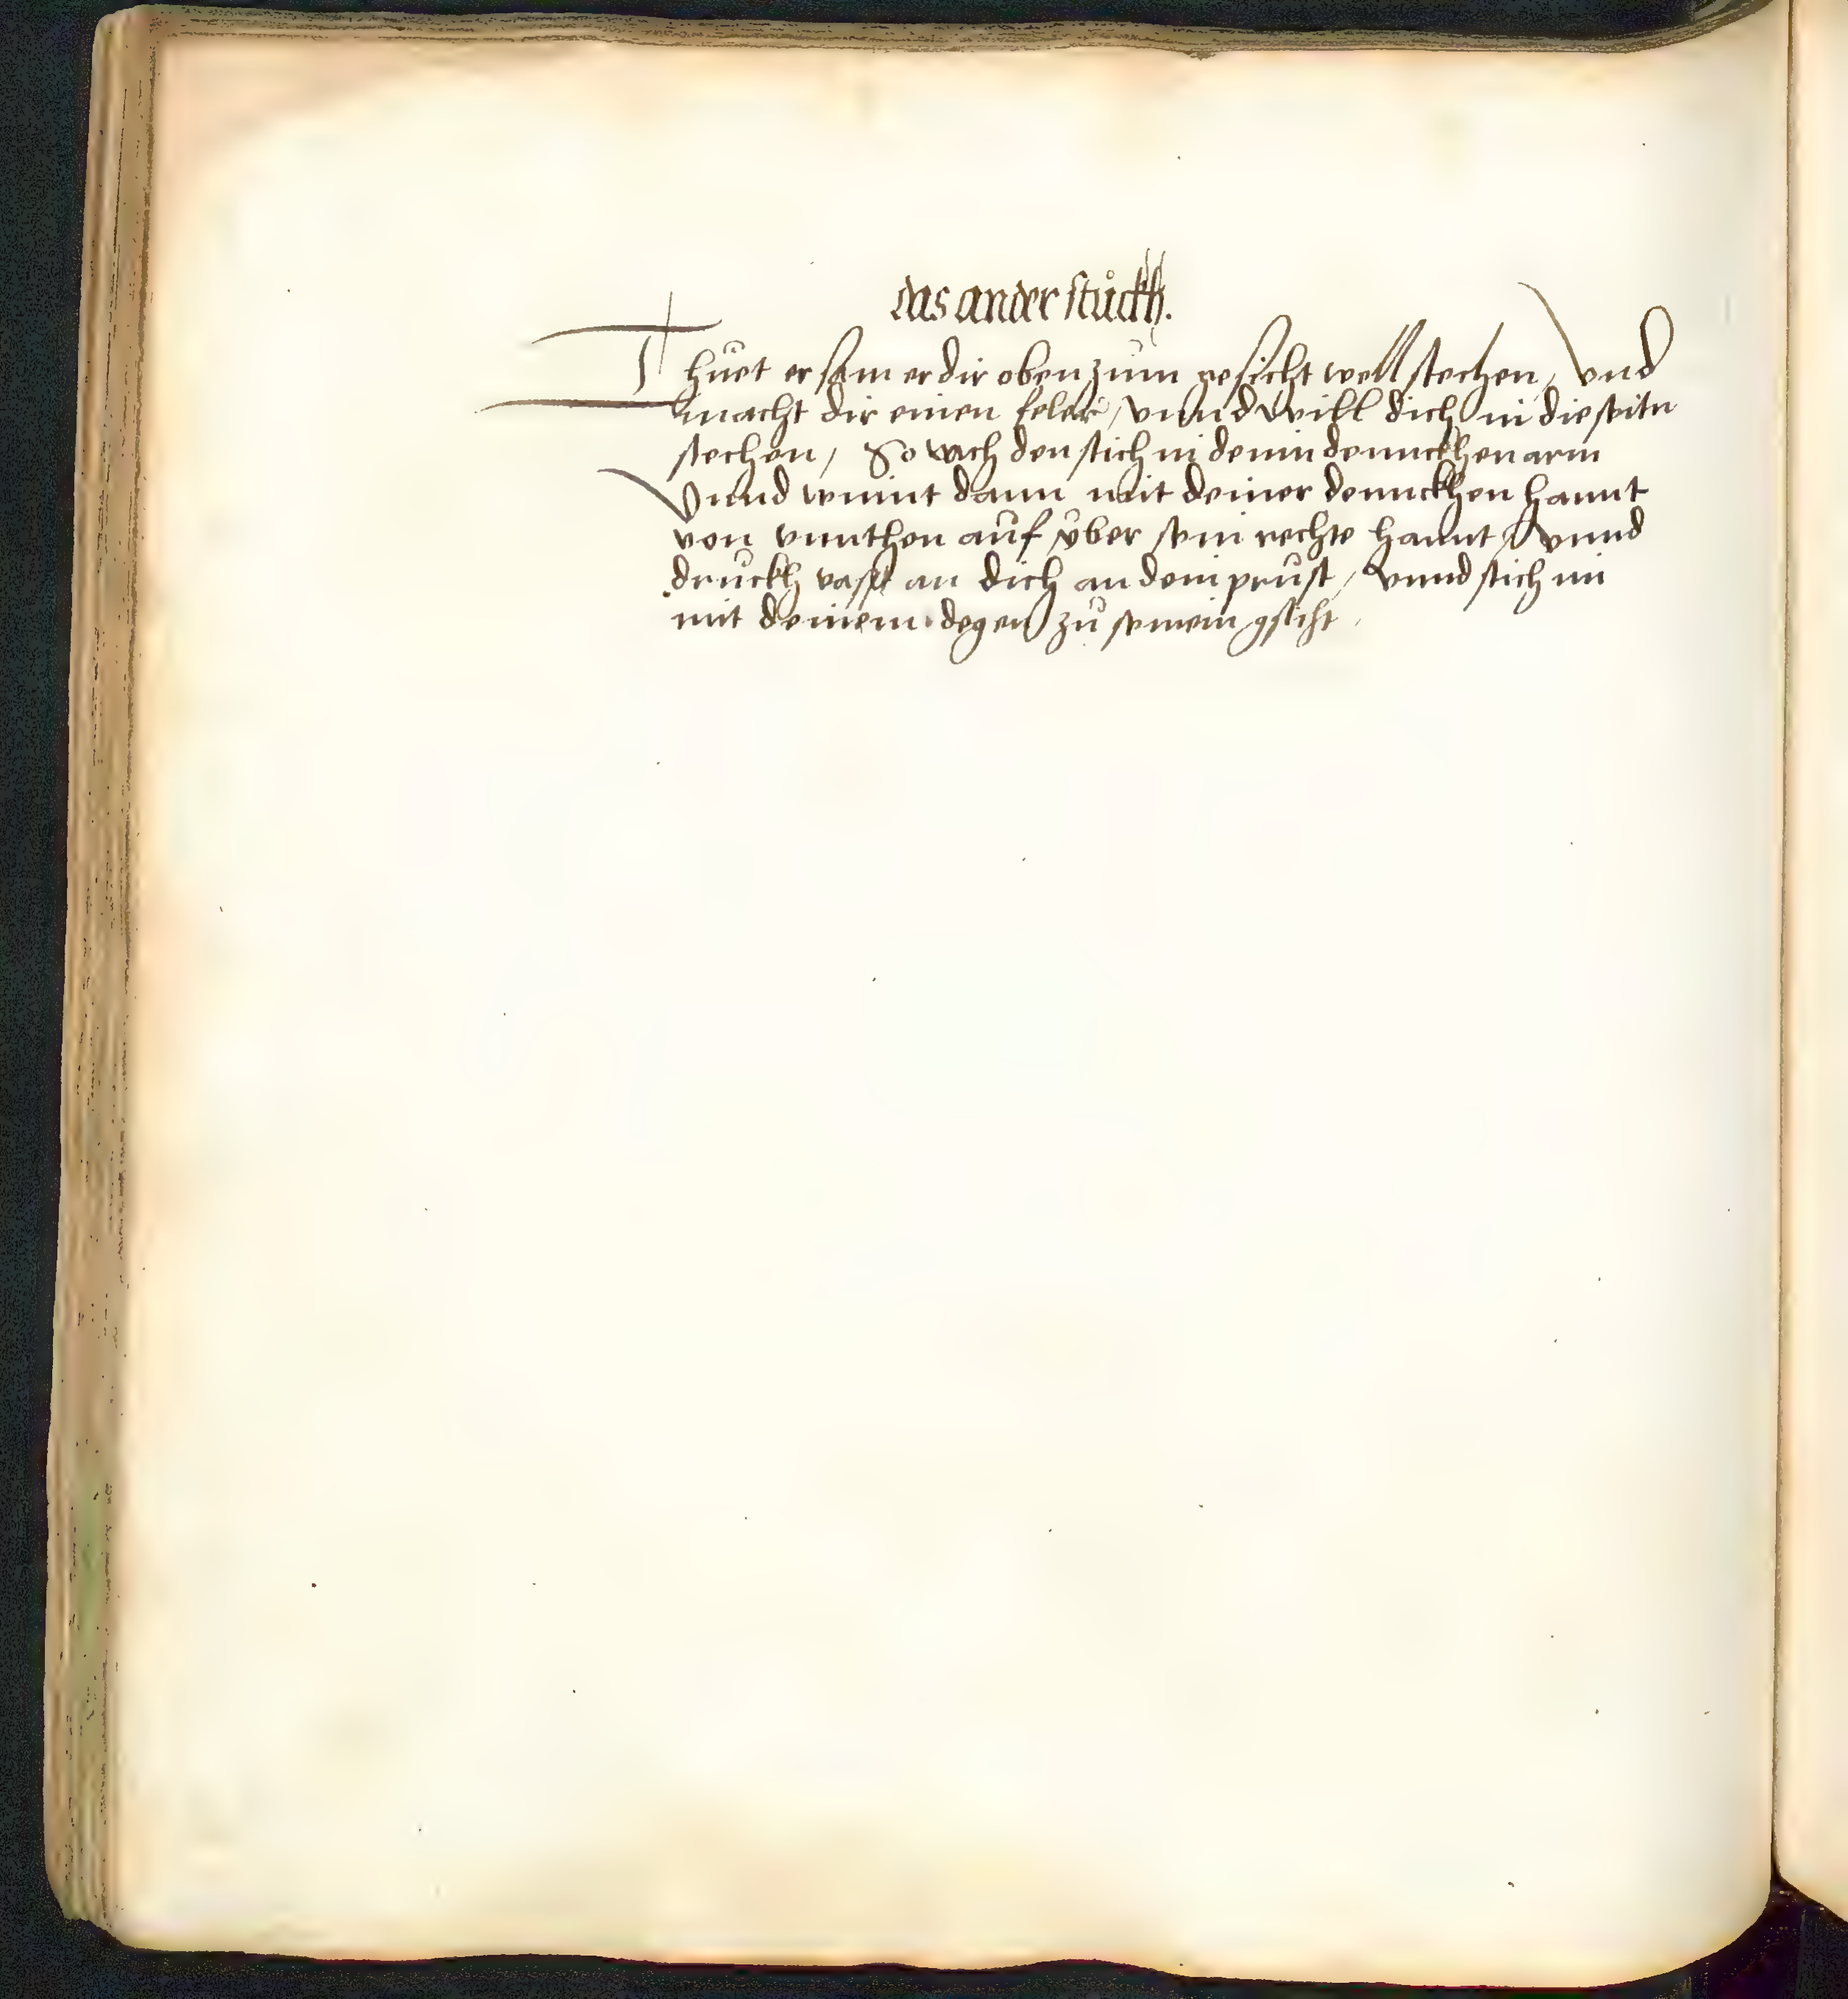 das ander stuckh.
Thuet er sam er dir oben zum gesicht well stechen, Vnd
macht dir einen feler, vnnd will dich in die seitn
stechen, So vach den stich in dein denncken arm
Vnnd wennt dann mit deiner dennckhen hannt
von vnnthen auf vber sein rechte hannt, vnnd
druckh vast an dich an dein prust, vnnd stich im
mit deinem degen zu seinem gsicht.